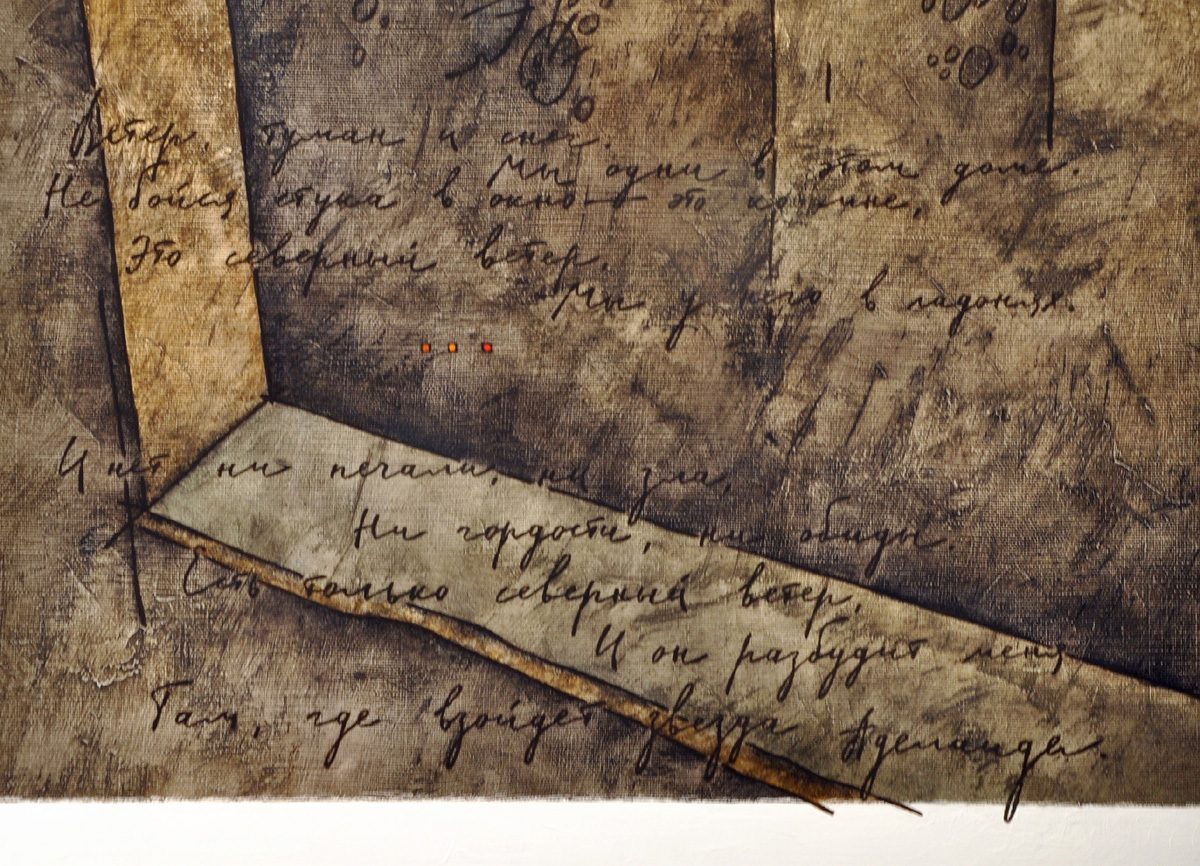 Ветер, туман и снег.
Мы одни в этом доме.
Не бойся стука в окно – это ко мне,
Это северный ветер,
Мы у него в ладонях.
И нет ни печали, ни зла,
Ни гордости, ни обиды.
Есть только северный ветер,
И он разбудит меня
Там, где взойдет звезда Аделаида.